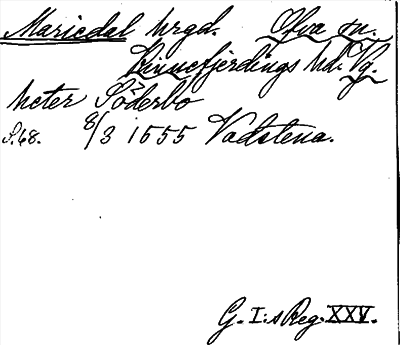 Mariedal hrgd. Ova sn.
Kinnefjerdings hd. Vg.
heter Söderbo
S. 48. 8/3 1555 Vadstena.
G. I:s Reg. XXV.